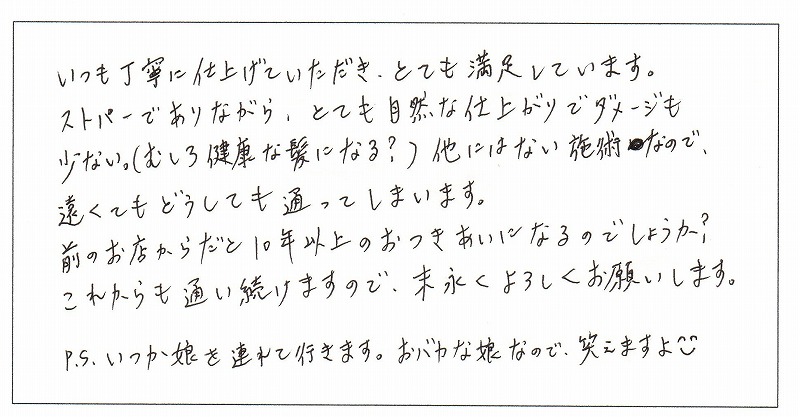 いつも丁寧に仕上げていただき、とても満足しています。
ストパーでありながら、とても自然な仕上がりでダメージも
少ない。(むしろ健康な髪になる?) 他にはない施術なので、
遠くてもどうしても通ってしまいます。
前のお店からだと10年以上のおつきあいになるのでしょうか?
これからも通い続けますので、末永くよろしくお願いします。
P.S. いつか娘を連れて行きます。おバカな娘なので、笑えますよ